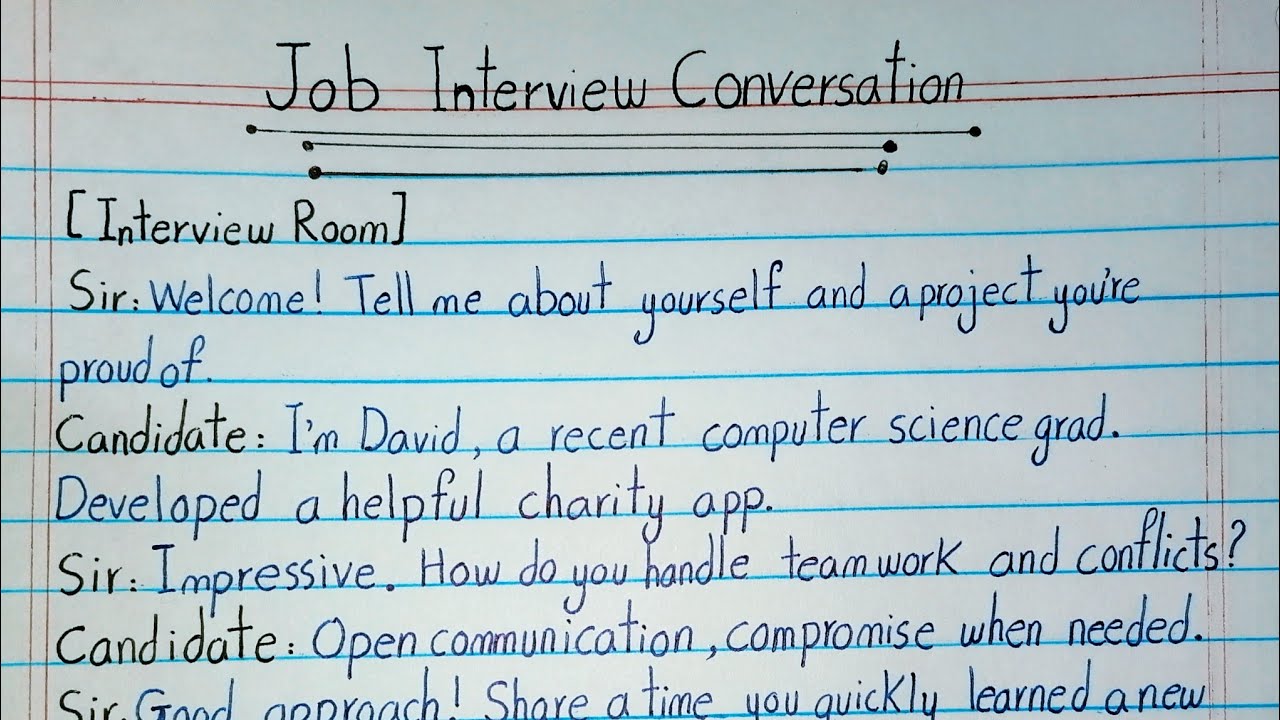 Job Interview Conversation
[Interview Room]
Sir: Welcome! Tell me about yourself and a project you're
proud of.
Candidate: I'm David, a recent computer science grad.
Developed a helpful charity app.
Sir: Impressive. How do you handle teamwork and conflicts?
Candidate: Open communication, compromise when needed.
Sir. Good approach! Share a time you quickly learned a new